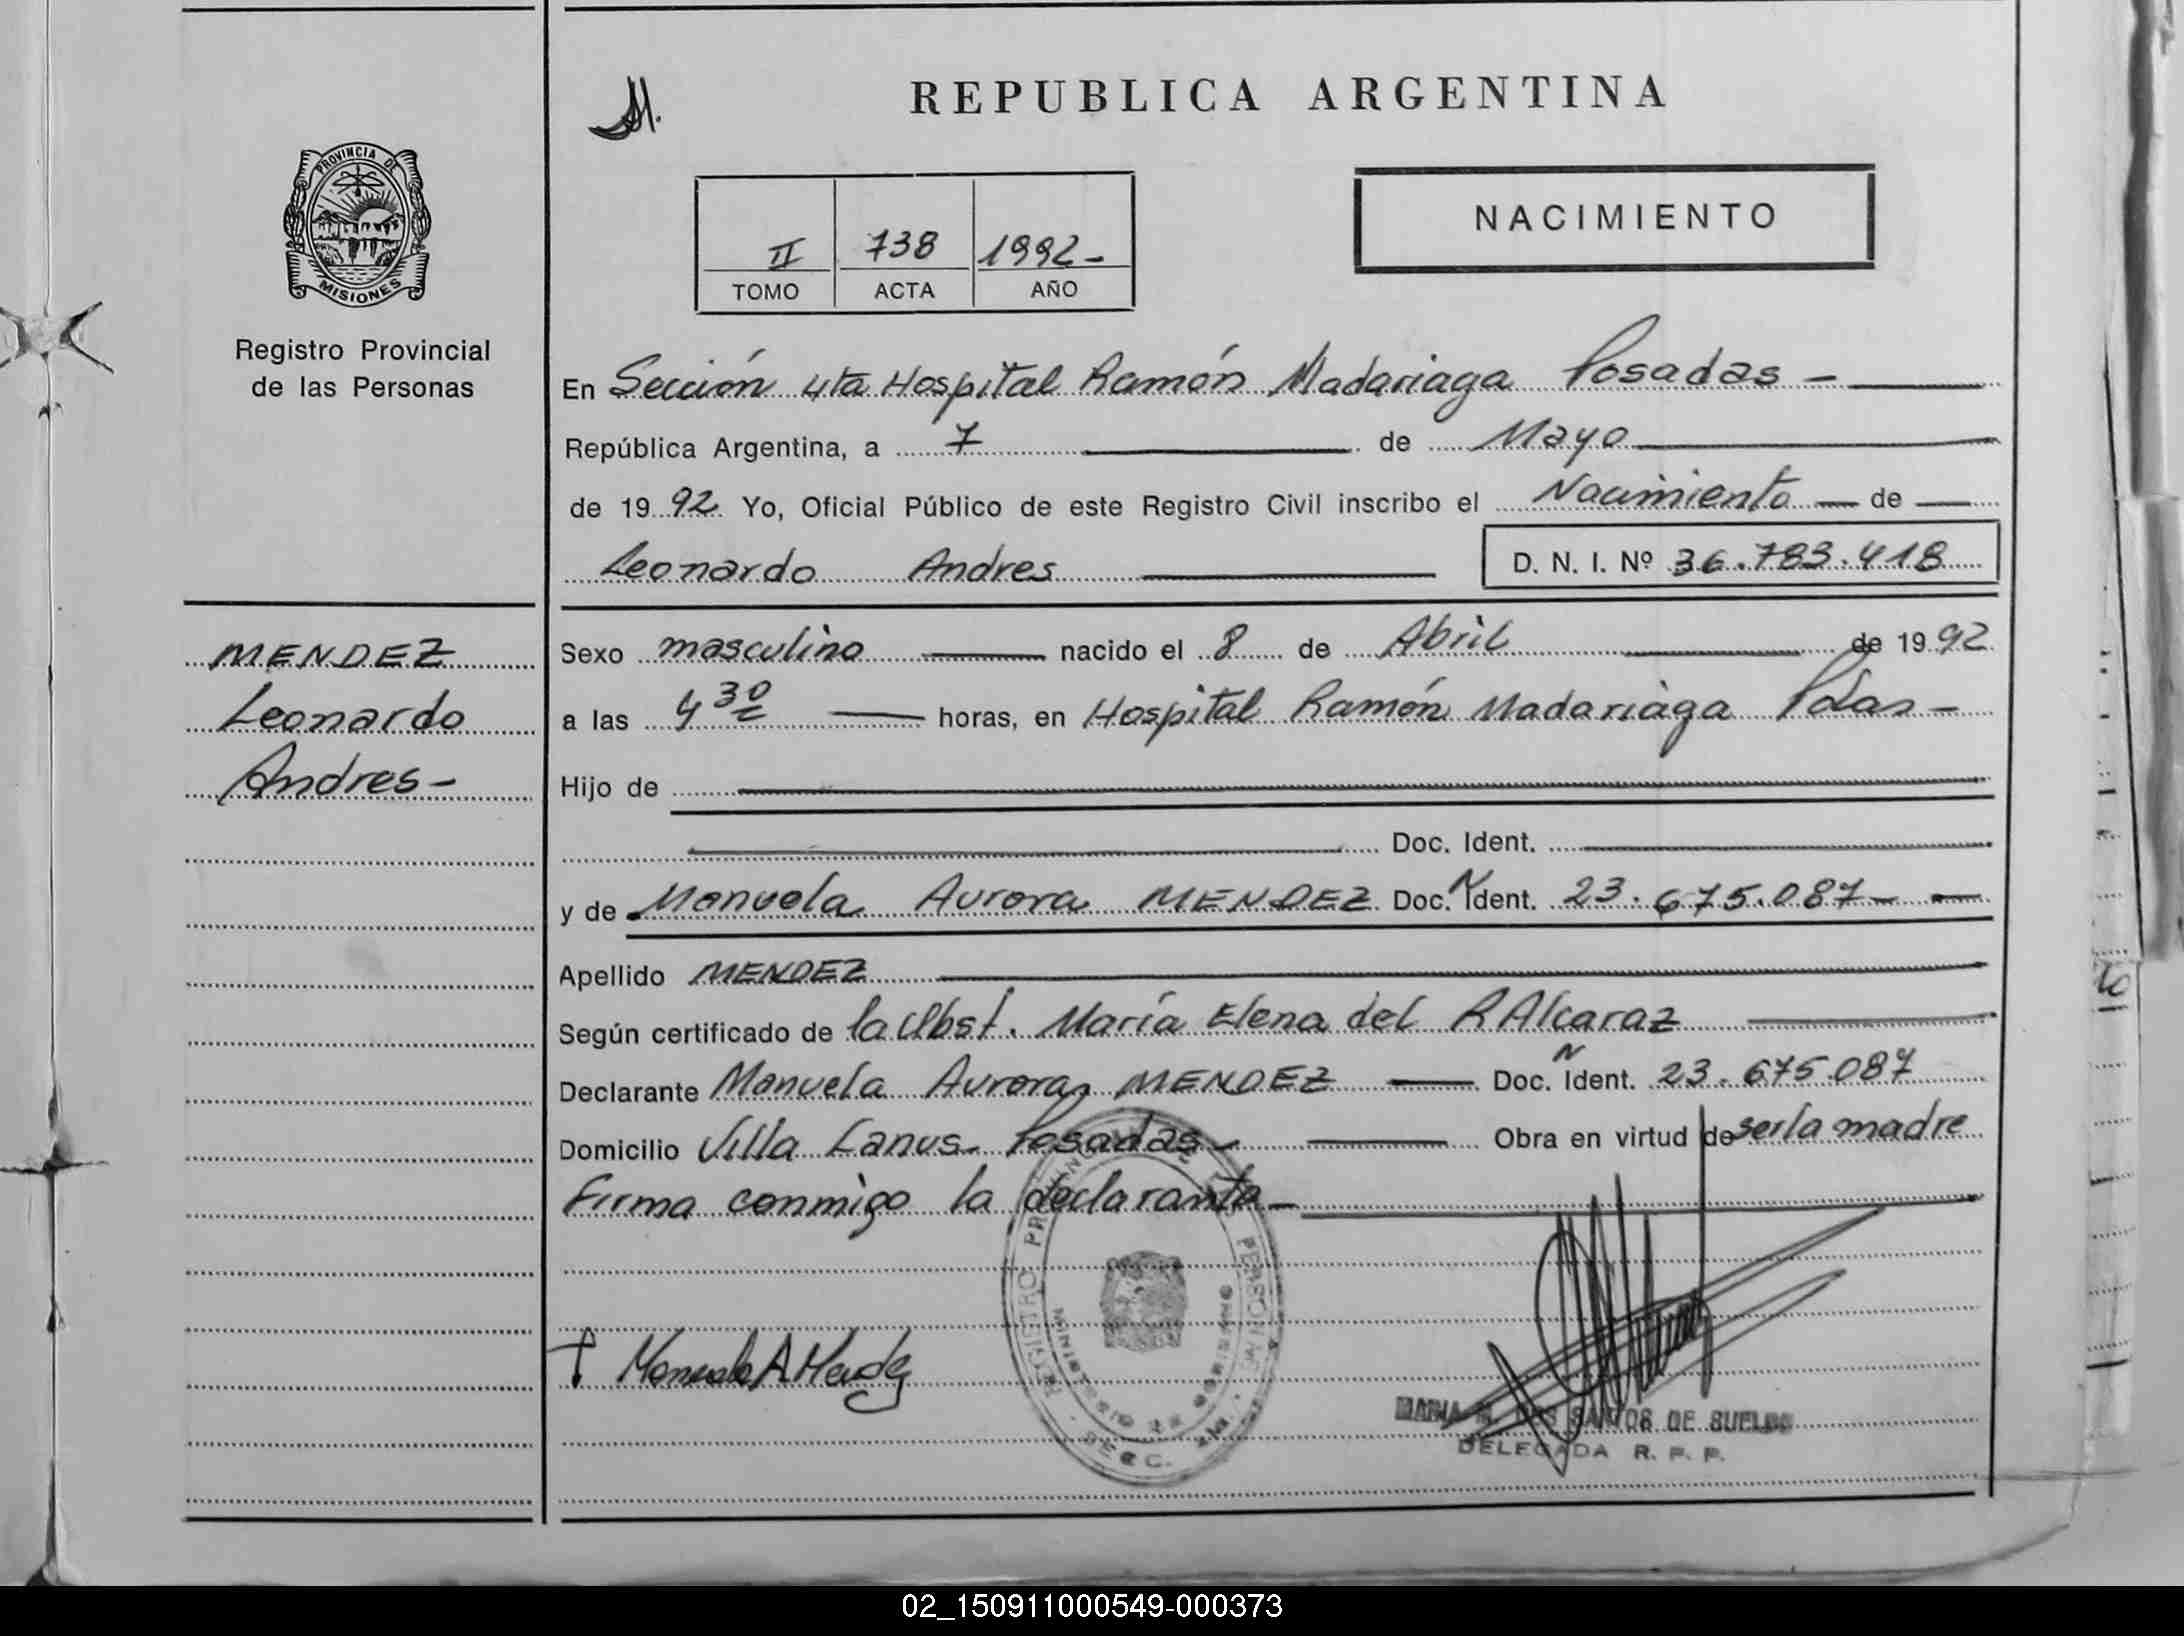 REPUBLICA ARGENTINA
PROVINCIA DE
MISIONES
Registro Provincial
de las Personas
II 738 1992-
TOMO ACTA AÑO
NACIMIENTO
En Sección 4ta Hospital Ramón Madariaga Posadas -
República Argentina, a 7 de Mayo
de 1992 Yo, Oficial Público de este Registro Civil inscribo el Nacimiento de
Leonardo Andres
D. N. I. Nº 36.783.418
MENDEZ
Leonardo
Andres-
Sexo masculino nacido el 8 de Abril de 1992
a las 4 30 horas, en Hospital Ramón Madariaga Pdas-
Hijo de
Doc. Ident.
y de Manuela Aurora MENDEZ Doc. N Ident. 23.675.087-
Apellido MENDEZ
Según certificado de la Obst. María Elena del R Alcaraz
Declarante Manuela Aurora MENDEZ Doc. N Ident. 23.675.087
Domicilio Villa Lanus Posadas- Obra en virtud de ser la madre
Firma conmigo la declarante-
Manuela A Mendez
REGISTRO
DOS SANTOS DE
DELEGADA R. P. P.
02_150911000549-000373